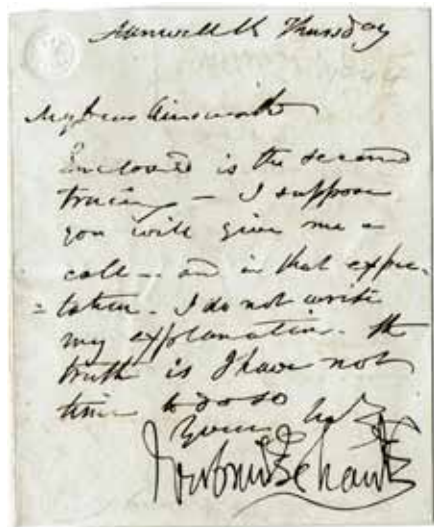 Amwell St Thursday
My Dear Ainsworth
Enclosed is the second
tracing – I suppose
you will give me a
call – and in that expec-
=tation. I do not write
my explanation. the
truth is I have not
time to do so
Yours
Geo Cruikshank